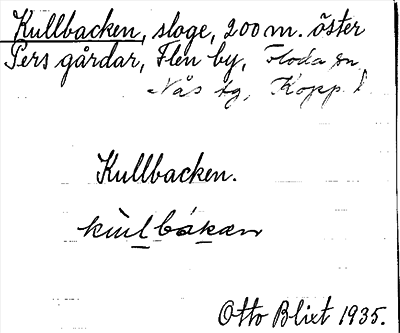 Kullbacken, sloge, 200 m. öster
Pers gårdar, Flen by, Floda sn
Nås tg, Kopp. l.
Kullbacken.
Otto Blixt 1935.